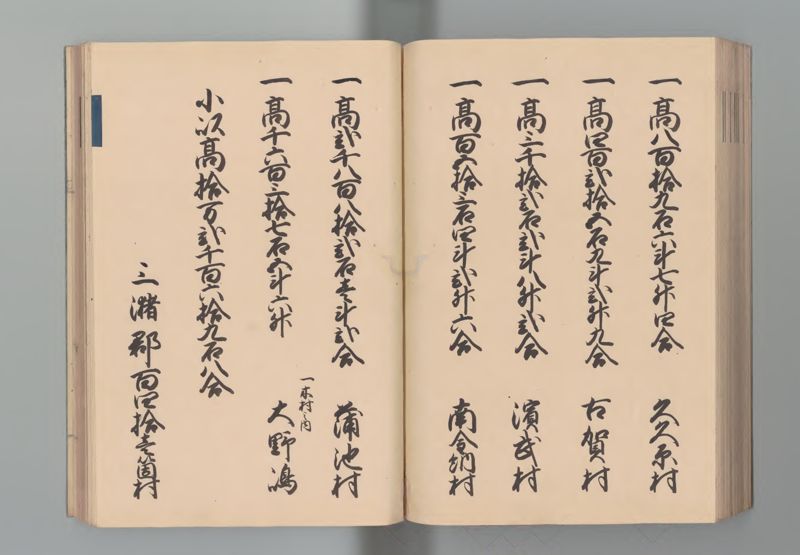 一高八百拾九石六斗七升四合 久々原村
一高四百弐拾五石九斗弐升九合 古賀村
一高三千拾弐石弐斗八升弐合 濱武村
一高百五拾三石四斗弐升六合 南合綱村
一高弐千八百八拾弐石壱斗弐合 蒲池村
一高千六百三拾七石五斗六升 一木村之内 大野嶋
小以高拾万弐千百六拾九石八合
三潴郡百四拾壱箇村